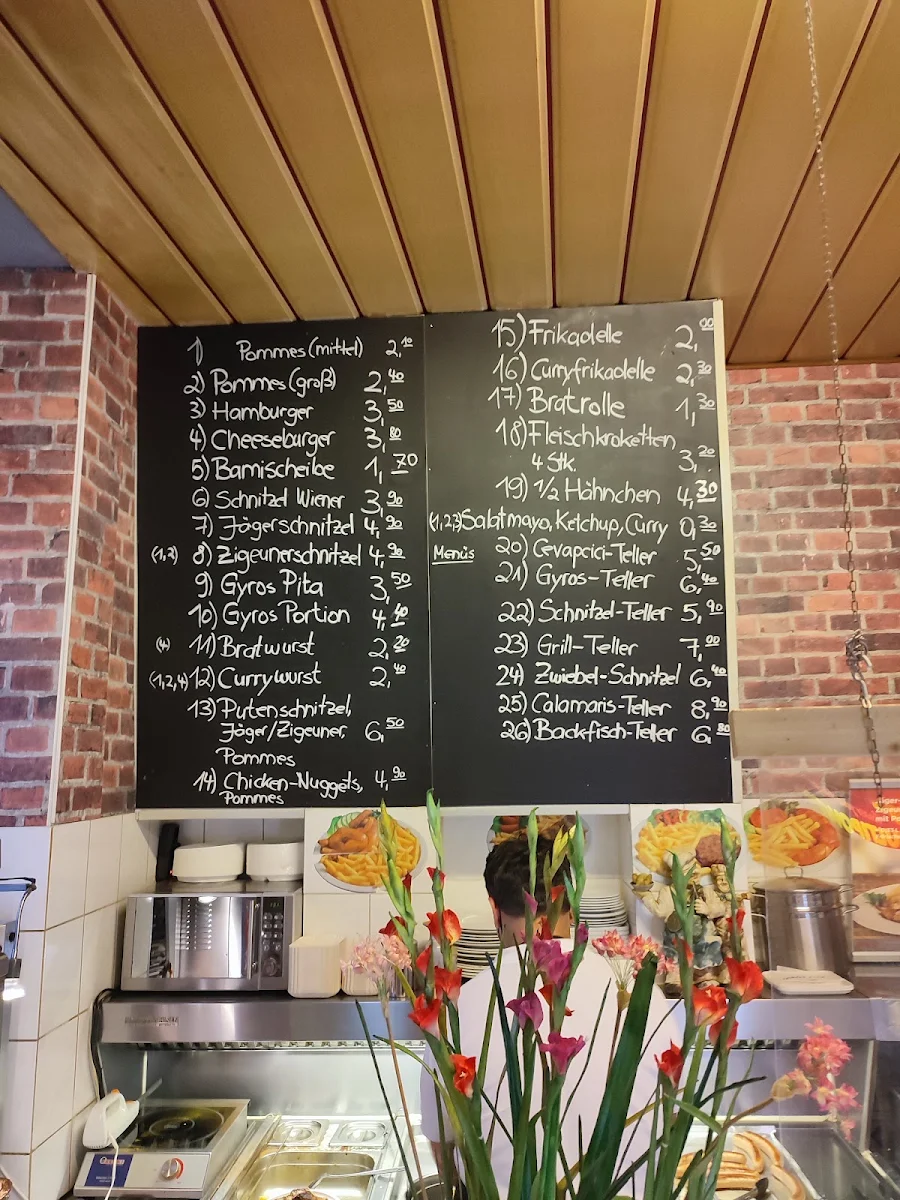 1) Pommes (mittel) 2,10
2) Pommes (groß) 2,40
3) Hamburger 3,50
4) Cheeseburger 3,80
5) Bamischeibe 1,70
6) Schnitzel Wiener 3,90
7) Jägerschnitzel 4,90
(1,2) 8) Zigeunerschnitzel 4,90
9) Gyros Pita 3,50
10) Gyros Portion 4,40
(4) 11) Bratwurst 2,20
(1,2,4) 12) Currywurst 2,40
13) Putenschnitzel,
Jäger/Zigeuner, 6,50
Pommes
14) Chicken-Nuggets, 4,90
Pommes
15) Frikadelle 2,00
16) Curryfrikadelle 2,30
17) Bratrolle 1,30
18) Fleischkroketten,
4 Stk. 3,20
19) 1/2 Hähnchen 4,30
(1,2,3) Salatmayo, Ketchup, Curry 0,30
Menüs 20) Cevapcici-Teller 5,50
21) Gyros-Teller 6,40
22) Schnitzel-Teller 5,90
23) Grill-Teller 7,00
24) Zwiebel-Schnitzel 6,40
25) Calamaris-Teller 8,90
26) Backfisch-Teller 6,80